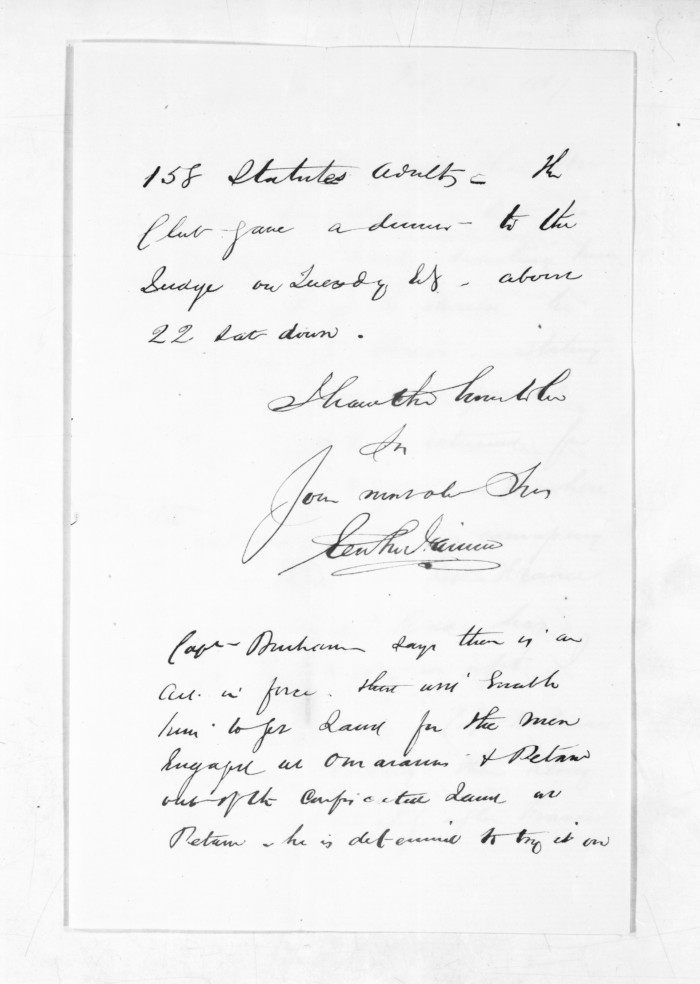 158 Statutes Adults - The
Club gave a dinner to the
Judge on Tuesday - about
22 sat down.
I have the honor to be
Sir
Your most obt Svt
Capt says there is an
Act in force that will Enable
him to get Land for the men
Engaged at Omaranui & Petane
out of the Confiscated Land at
Petane - he is determined to try it on